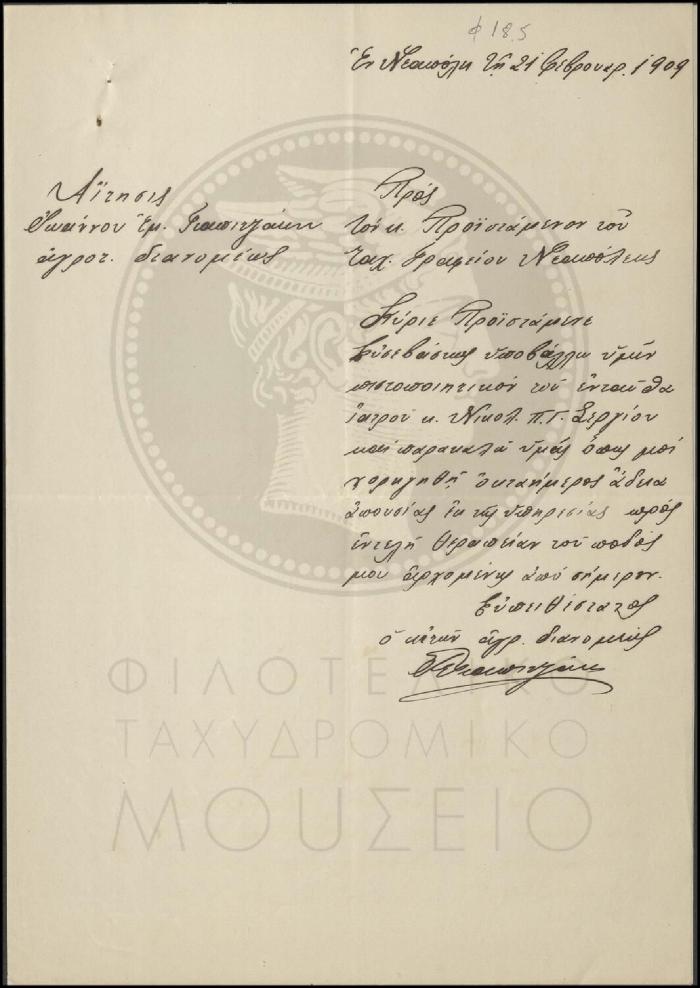 φ 18.5
Ἐν Νεαπόλει τῇ 21 Φεβρουαρ. 1909
Αἴτησις
Ἰωάννου Ἐμ.
ἀγροτ. διανομέως
Πρός
τόν κ. Προϊστάμενον τοῦ
Ταχ. Γραφείου Νεαπόλεως
Κύριε Προϊστάμενε
Εὐσεβάστως ὑποβάλλω ὑμῖν
πιστοποιητικόν τοῦ ἐνταῦθα
ἰατροῦ κ. Νικολ. Π. Γ. Σεργίου
καί παρακαλῶ ὑμᾶς ὅπως μοί
χορηγηθῇ ὀκταήμερος ἄδεια
ἀπουσίας ἐκ τῆς ὑπηρεσίας πρός
ἐντελῆ θεραπείαν τοῦ ποδός
μου ἀρχομένης ἀπό σήμερον.
Εὐπειθέστατος
ὁ αἰτῶν ἀγρ. διανομεύς
ΦΙΛΟΤΕΛΙΚΟ
ΤΑΧΥΔΡΟΜΙΚΟ
ΜΟΥΣΕΙΟ